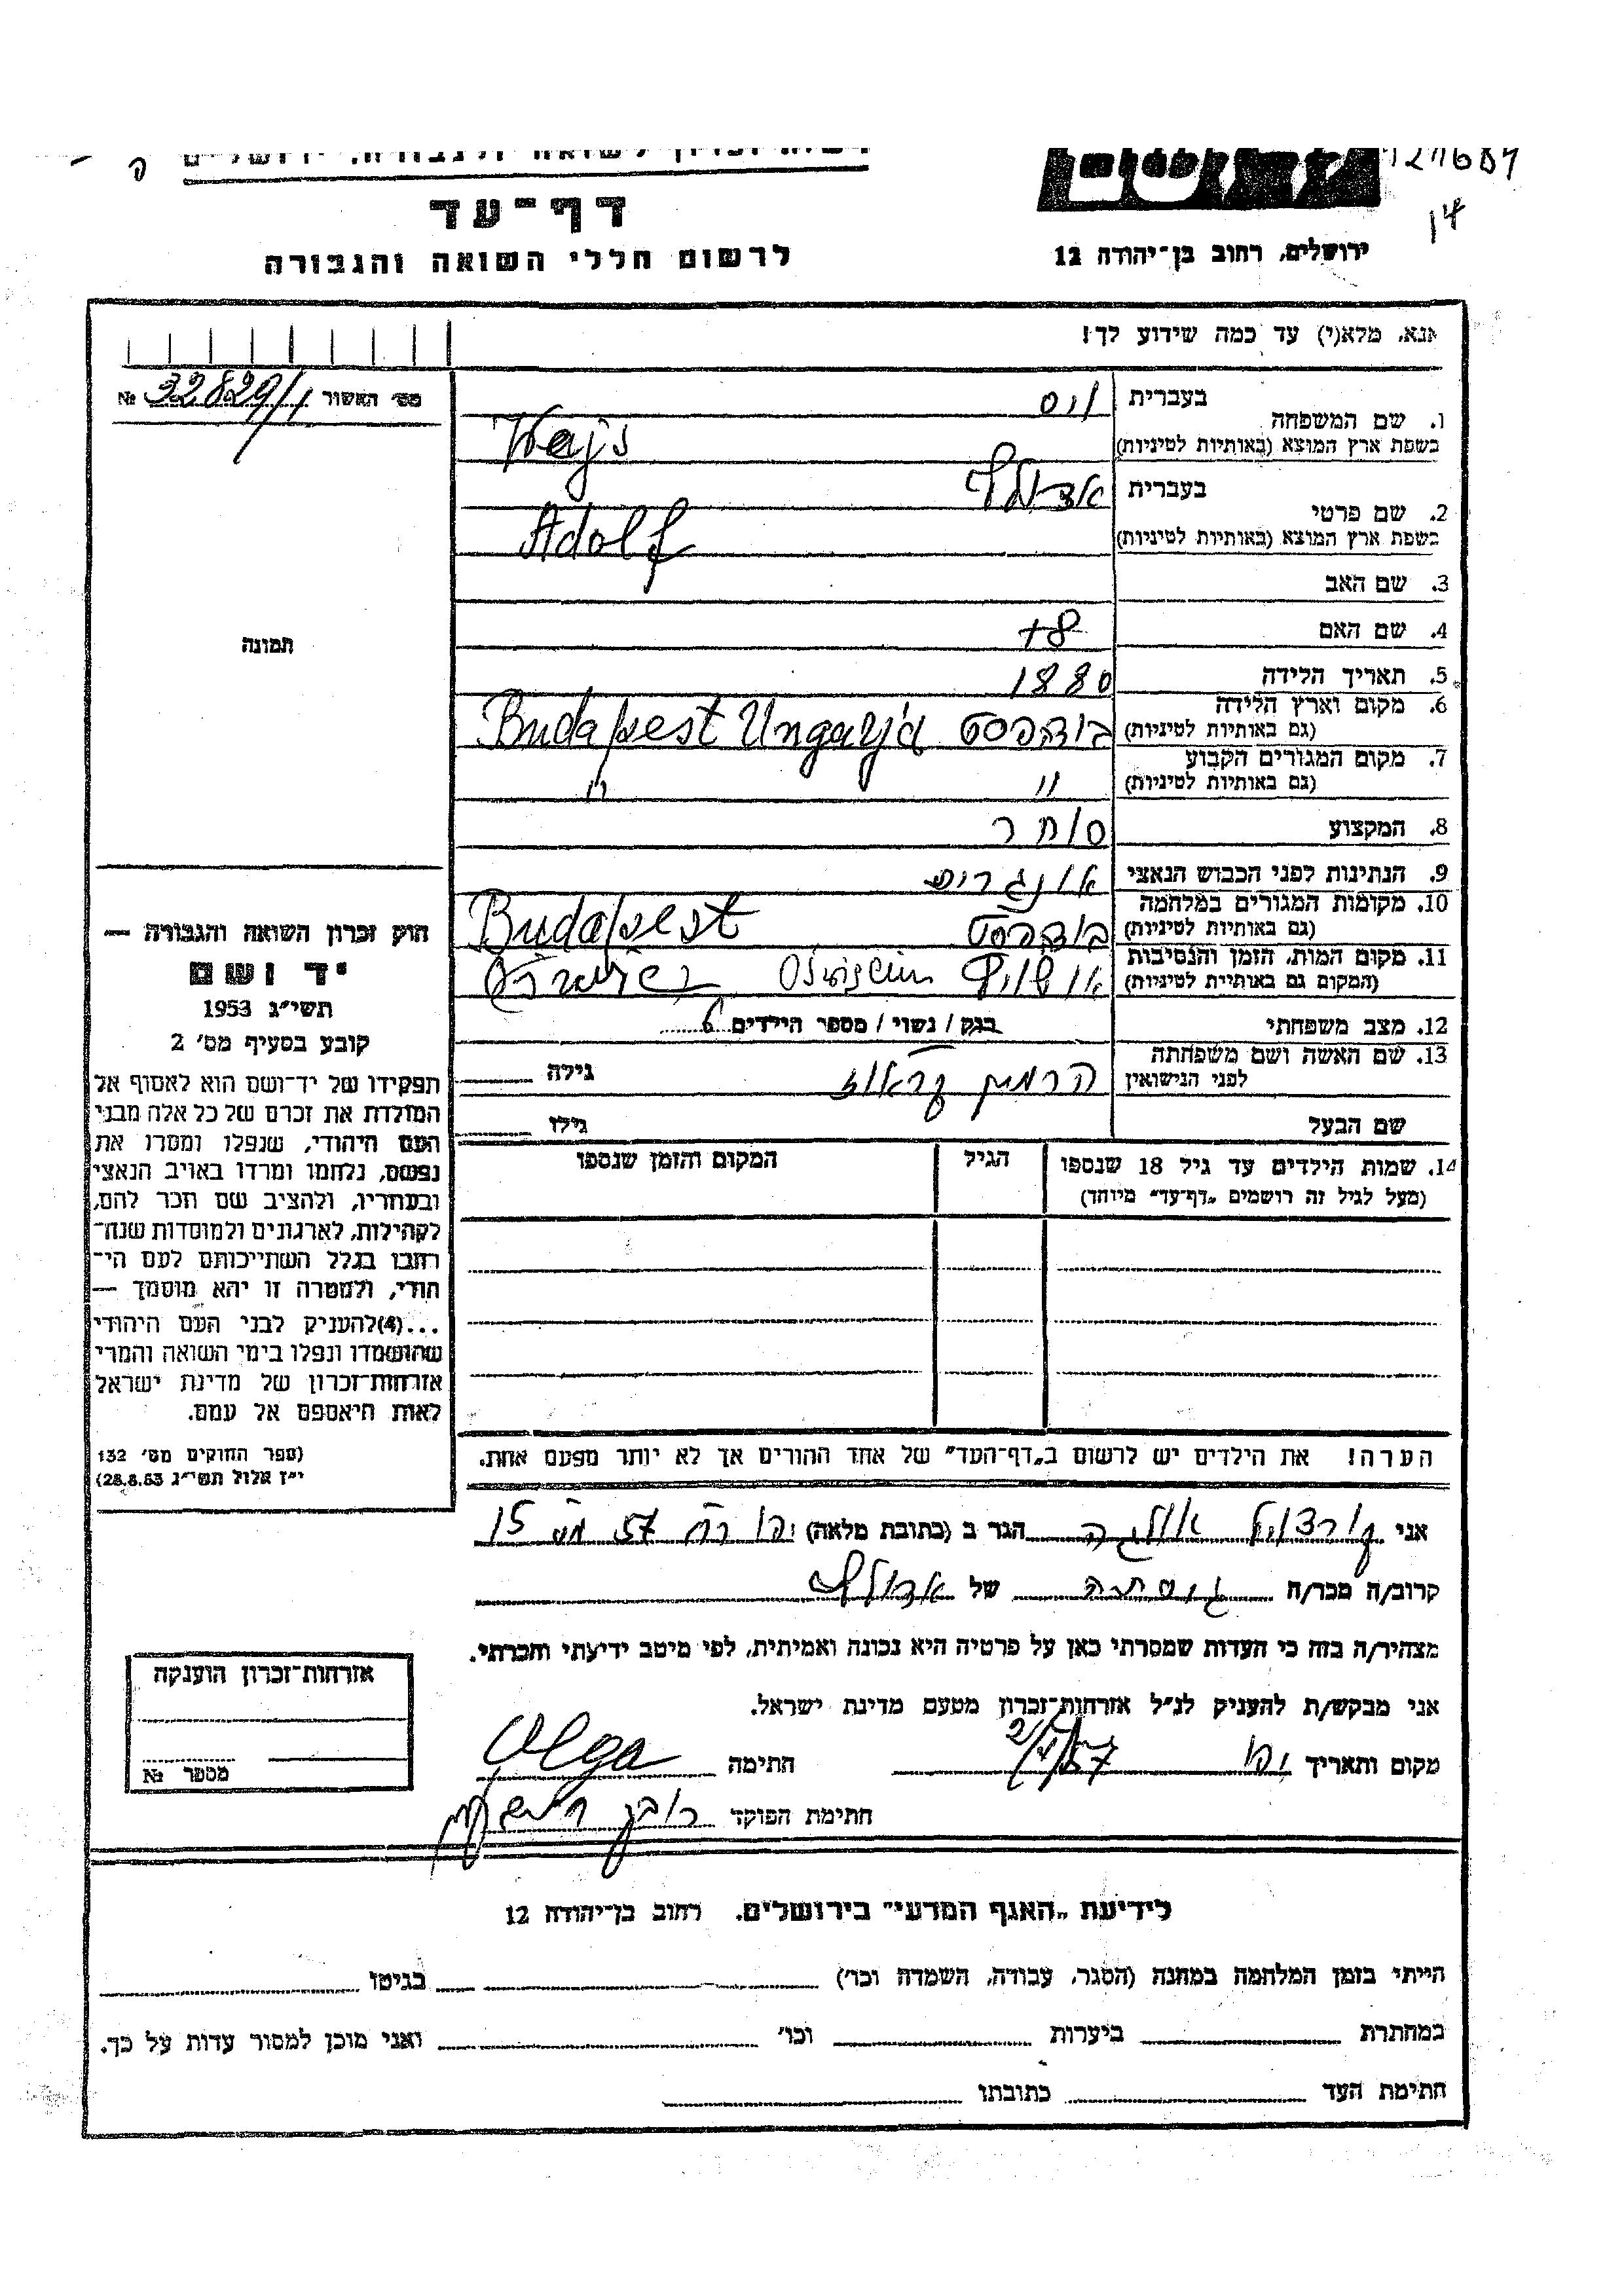 דף-עד
לרשום חללי השואה והגבורה
ירושלים, רחוב בן-יהודה 12
אנא, מלא(י) עד כמה שידוע לך!
מס׳ האשור № 32829/1
1. שם המשפחה
בעברית
וייס
בשפת ארץ המוצא (באותיות לטיניות)
Wajs
2. שם פרטי
בעברית
אדולף
בשפת ארץ המוצא (באותיות לטיניות)
Adolf
3. שם האב
4. שם האם
תמונה
5. תאריך הלידה 1880
6. מקום וארץ הלידה
(גם באותיות לטיניות)
בודפסט Budapest Ungarja
7. מקום המגורים הקבוע
(גם באותיות לטיניות)
" "
8. המקצוע סוחר
9. הנתינות לפני הכבוש הנאצי
10. מקומות המגורים במלחמה
(גם באותיות לטיניות)
בודפסט Budapest
11. מקום המות, הזמן והנסיבות
(המקום גם באותיית לטיניות)
12. מצב משפחתי רווק / נשוי / מספר הילדים 6
13. שם האשה ושם משפחתה
לפני הנישואין
גילה
שם הבעל גילו
14. שמות הילדים עד גיל 18 שנספו
(מעל לגיל זה רושמים „דף-עד” מיוחד)
הגיל
המקום והזמן שנספו
הערה! את הילדים יש לרשום ב„דף-העד” של אחד ההורים אך לא יותר מפעם אחת.
חוק זכרון השואה והגבורה —
יד ושם
תשי״ג 1953
קובע בסעיף מס׳ 2
תפקידו של יד-ושם הוא לאסוף אל
המולדת את זכרם של כל אלה מבני
העם היהודי, שנפלו ומסרו את
נפשם, נלחמו ומרדו באויב הנאצי
ובעוזריו, ולהציב שם וזכר להם,
לקהילות, לארגונים ולמוסדות שנח-
רבו בגלל השתייכותם לעם הי-
הודי, ולמטרה זו יהא מוסמך —
...(4) להעניק לבני העם היהודי
שהושמדו ונפלו בימי השואה והמרי
אזרחות-זכרון של מדינת ישראל
לאות היאספם אל עמם.
(ספר החוקים מס׳ 132
י״ז אלול תשי״ג 28.8.53)
אני אולגה הגר ב (כתובת מלאה)
קרוב/ה מכר/ה של אדולף
מצהיר/ה בזה כי העדות שמסרתי כאן על פרטיה היא נכונה ואמיתית, לפי מיטב ידיעתי והכרתי.
אני מבקש/ת להעניק לנ״ל אזרחות-זכרון מטעם מדינת ישראל.
מקום ותאריך יפו חתימה Olga
חתימת הפוקד
אזרחות-זכרון הוענקה
מספר №
לידיעת „האגף המדעי” בירושלים, רחוב בן-יהודה 12
הייתי בזמן המלחמה במחנה (הסגר, עבודה, השמדה וכו׳) בגיטו
במחתרת ביערות וכו׳ ואני מוכן למסור עדות על כך.
חתימת העד כתובתו